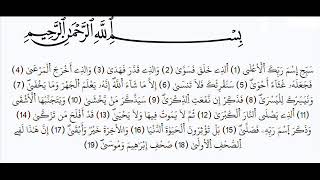 بِسْمِ اللَّهِ الرَّحْمَٰنِ الرَّحِيمِ
سَبِّحِ إِسْمَ رَبِّكَ الْأَعْلَىٰ (1) الَّذِي خَلَقَ فَسَوَّىٰ (2) وَالَّذِي قَدَّرَ فَهَدَىٰ (3) وَالَّذِي أَخْرَجَ الْمَرْعَىٰ (4)
فَجَعَلَهُ غُثَاءً أَحْوَىٰ (5) سَنُقْرِئُكَ فَلَا تَنْسَىٰ (6) إِلَّا مَا شَاءَ اللَّهُ إِنَّهُ يَعْلَمُ الْجَهْرَ وَمَا يَخْفَىٰ (7)
وَنُيَسِّرُكَ لِلْيُسْرَىٰ (8) فَذَكِّرْ إِنْ نَفَعَتِ الذِّكْرَىٰ (9) سَيَذَّكَّرُ مَنْ يَخْشَىٰ (10) وَيَتَجَنَّبُهَا الْأَشْقَى
(11) الَّذِي يَصْلَى النَّارَ الْكُبْرَىٰ (12) ثُمَّ لَا يَمُوتُ فِيهَا وَلَا يَحْيَىٰ (13) قَدْ أَفْلَحَ مَنْ تَزَكَّىٰ (14)
وَذَكَرَ إِسْمَ رَبِّهِ فَصَلَّىٰ (15) بَلْ تُؤْثِرُونَ الْحَيَوٰةَ الدُّنْيَا (16) وَالْآخِرَةُ خَيْرٌ وَأَبْقَىٰ (17) إِنَّ هَٰذَا لَفِي
الصُّحُفِ الْأُولَىٰ (18) صُحُفِ إِبْرَاهِيمَ وَمُوسَىٰ (19)